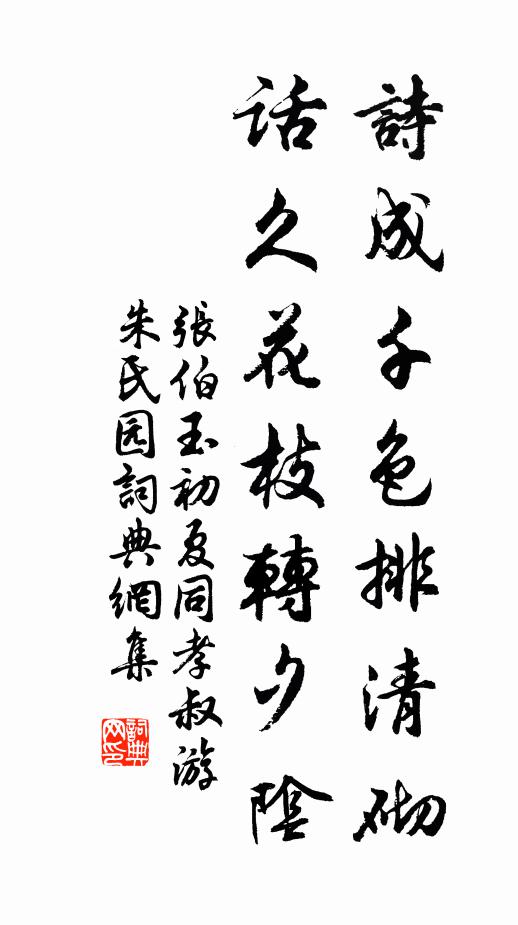 詩成千色排清砌
話久花枝轉夕陰
張伯玉初夏同孝叔游
朱民园詞典網集
詞典网印